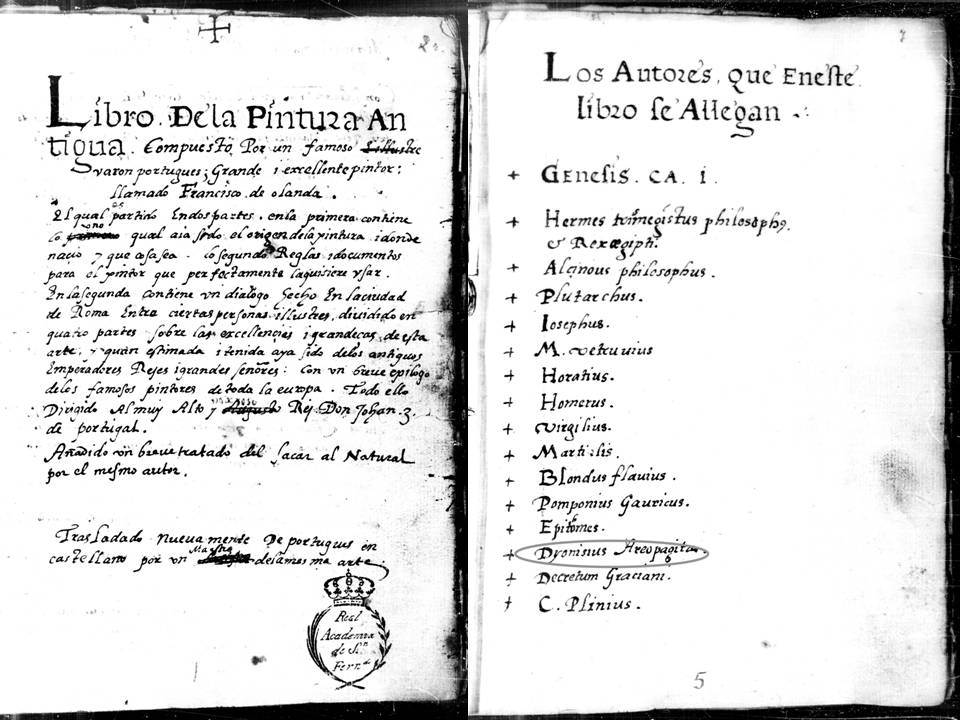 Libro. De la Pintura An
tigua. Compuesto Por un famoso illustre
varon portugues; Grande i excellente pintor:
llamado Francisco. de olanda.
El qual partido En dos partes. en la primera contiene
lo primero qual aia sido. el origen de la pintura i donde
nacio y que cosa sea. lo segundo Reglas i documentos
para el pintor que perfectamente la quisiere usar.
En la segunda contiene un dialogo hecho En la ciudad
de Roma Entre ciertas personas illustres, dividido en
quatro partes sobre las excellencias i grandeças de esta
arte, y quan estimada i tenida aya sido delos antiguos
Emperadores Reyes i grandes señores: con un breve epilogo
delos famosos pintores de toda la europa. Todo ello
Dirigido Al muy Alto y Augusto Rey Don Johan. 3.
de portugal.
Añadido un breve tratado del sacar al Natural
por el mesmo autor.
Trasladado nueva mente De portugues en
Maestro
castellano por un de la mesma arte.
Real
Academia
de Sn
Ferndo
Los Autores, que En este
libro se Allegan
+ Genesis. CA. I.
+ Hermes trimegistus philosoph9.
& Rex ægipti.
+ Alcinous philosophus.
+ Plutarchus.
+ Iosephus.
+ M. vetruvius
+ Horatius.
+ Homerus.
+ Virgilius.
+ Martialis.
+ Blondus flavius.
+ Pomponius Gauricus.
+ Epitomes.
+ Dyonisius Areopagita.
+ Decretum Graciani.
+ C. Plinius.
5